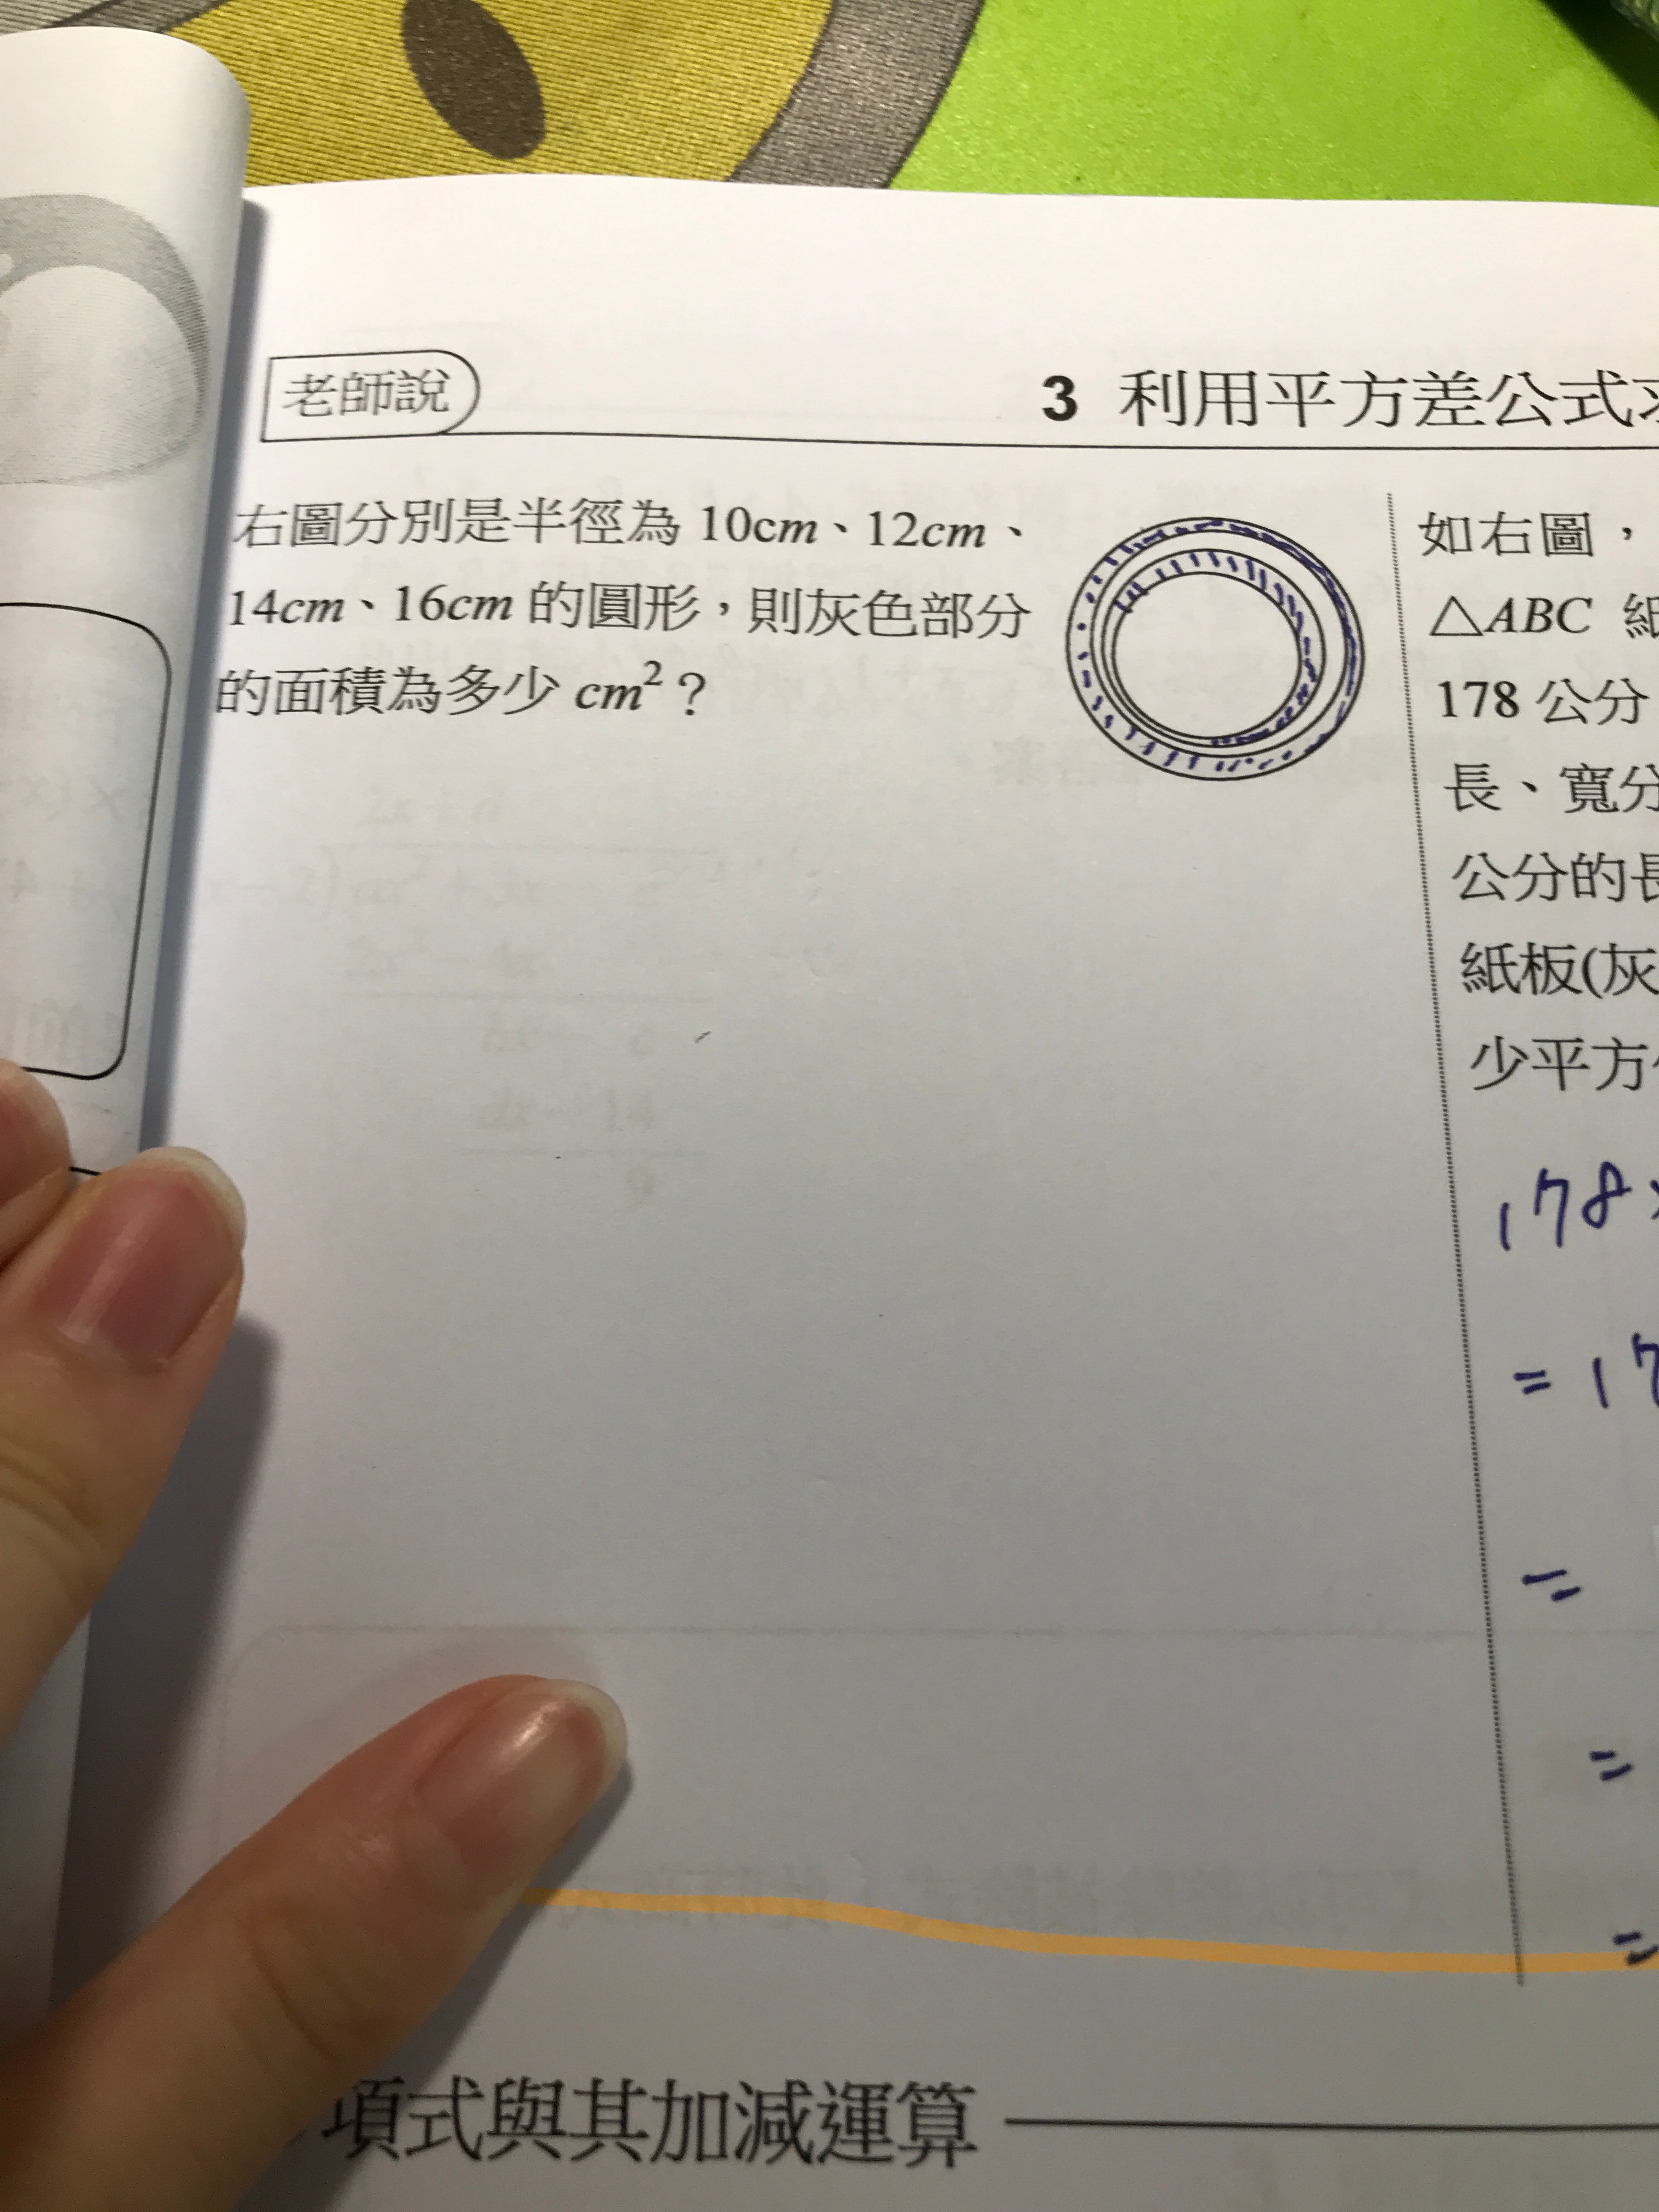 老師說
3 利用平方差公式求
右圖分別是半徑為 10cm、12cm、
14cm、16cm 的圓形，則灰色部分
的面積為多少 cm²？
如右圖，
△ABC 紙
178 公分
長、寬分
公分的長
紙板(灰
少平方
178
= 17
=
=
=
項式與其加減運算